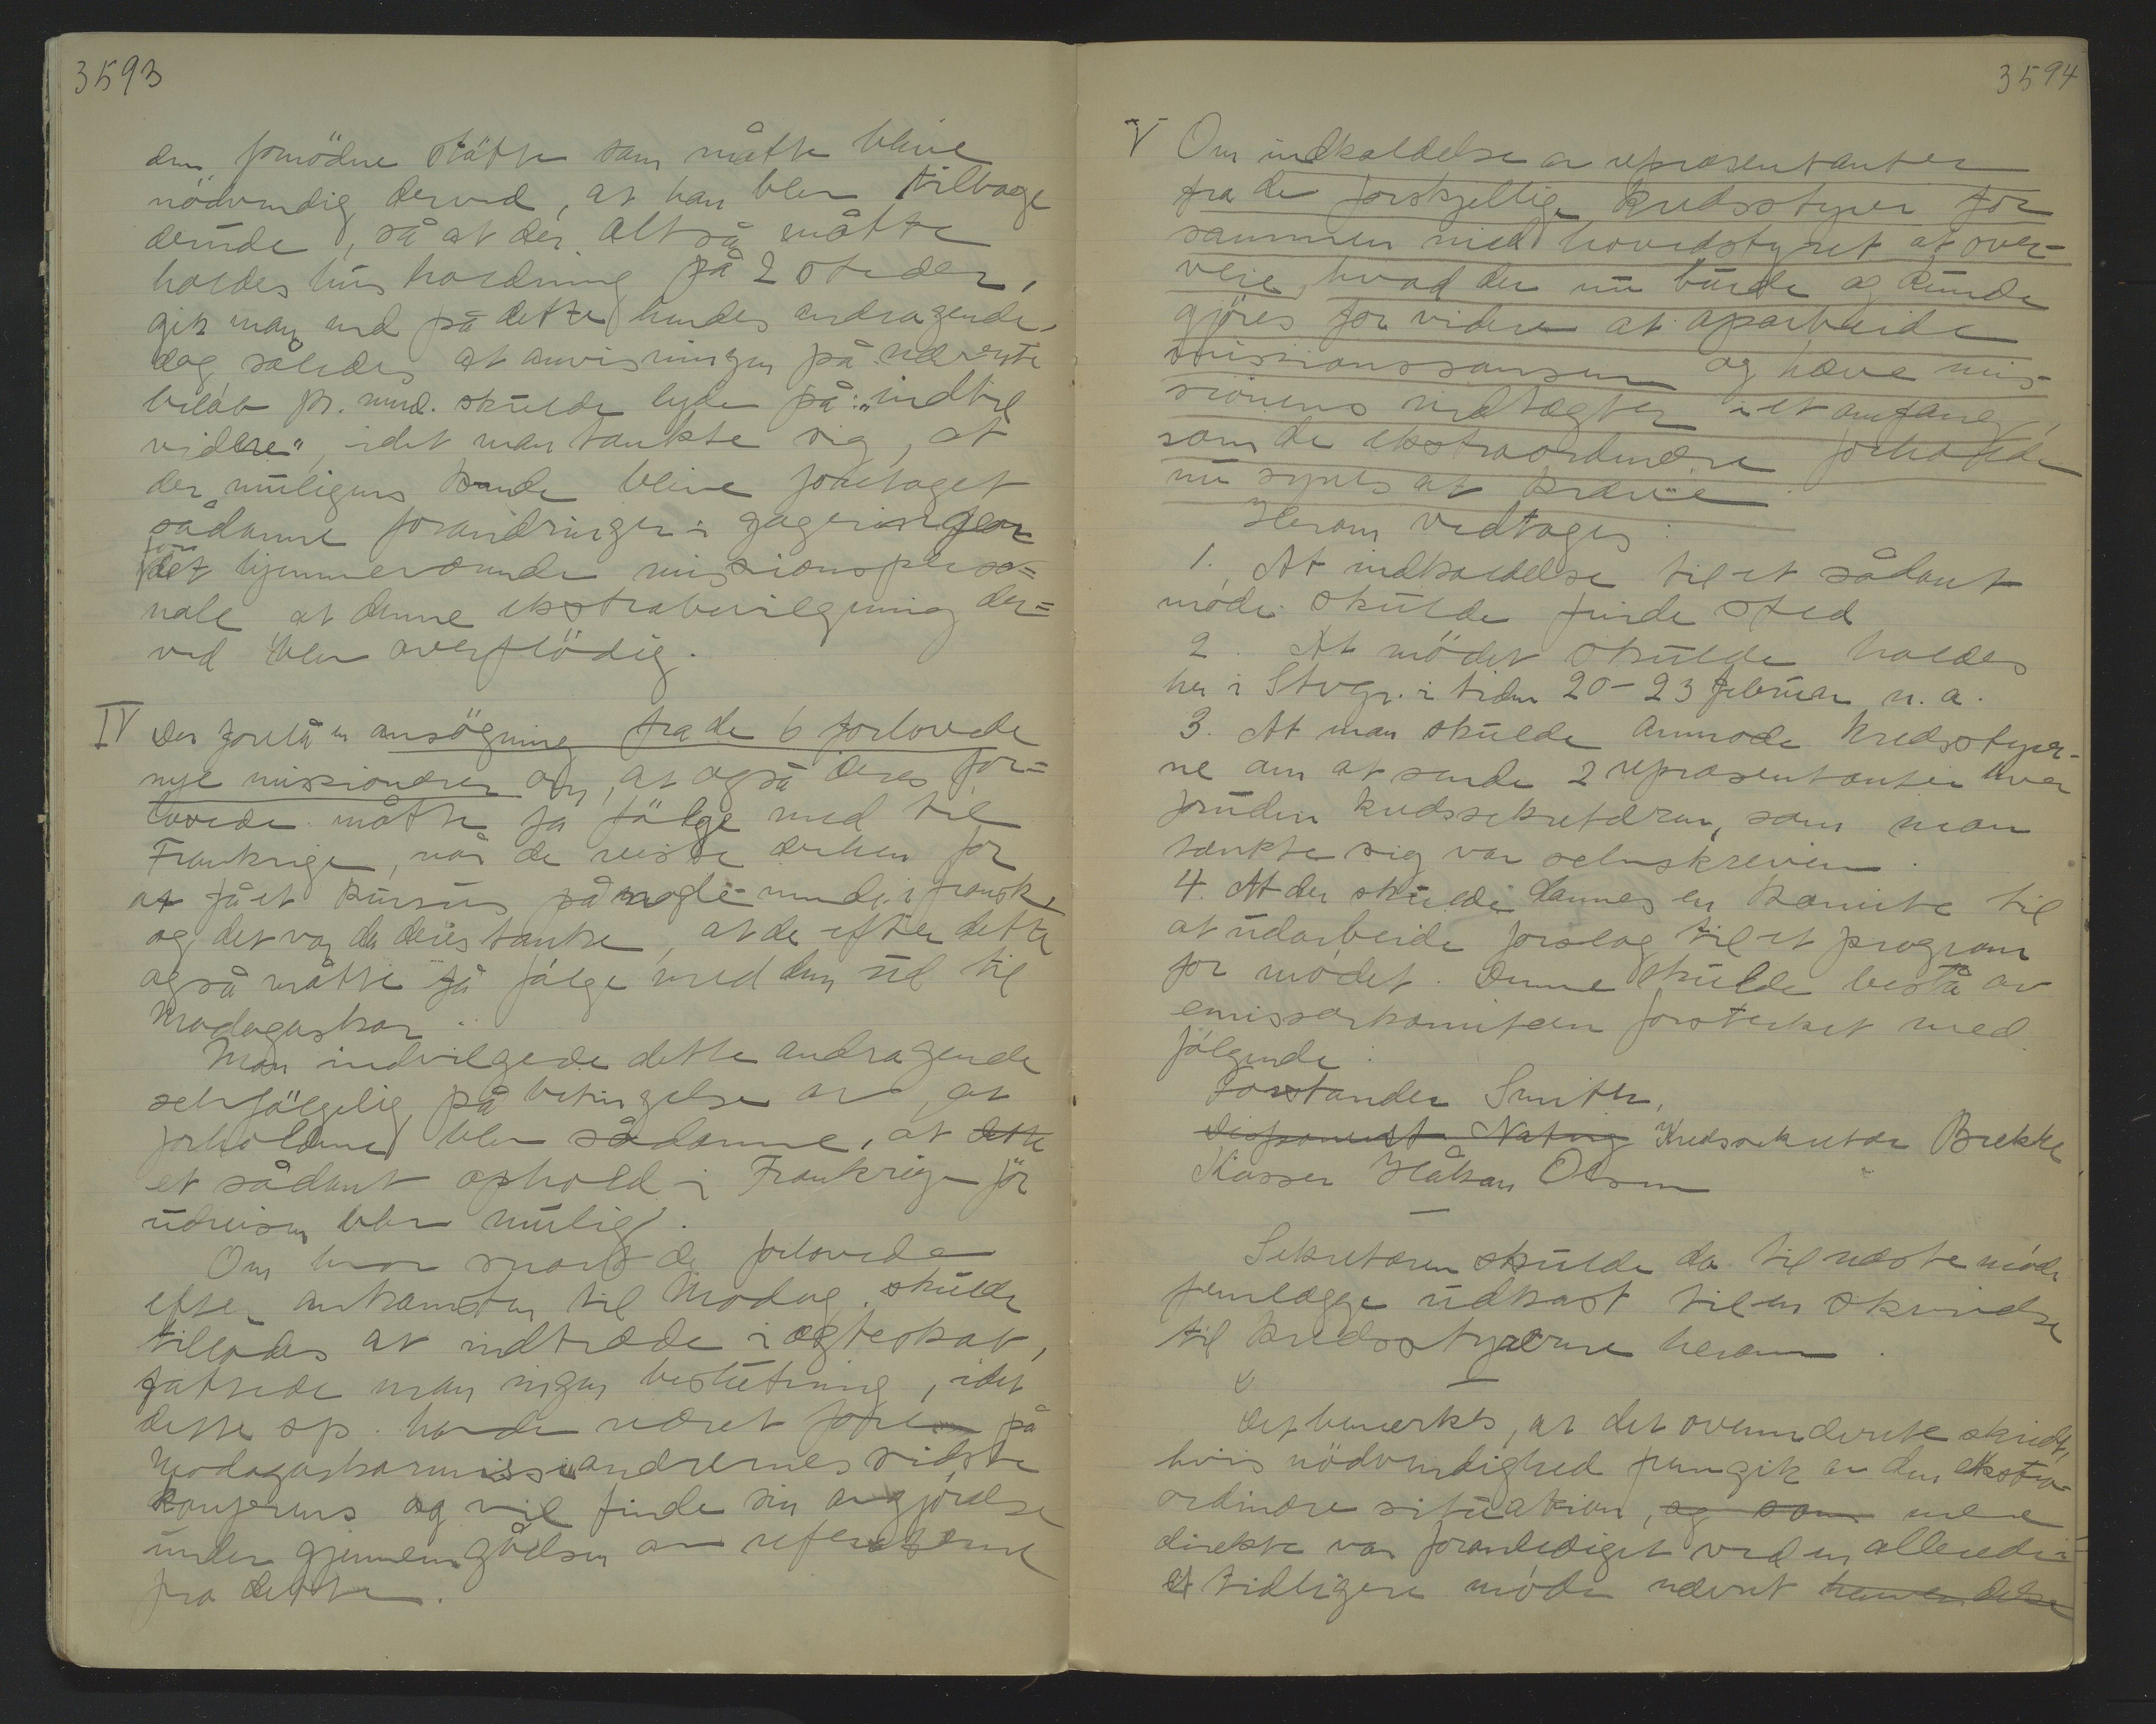 3593
den fornödne stötte som måtte blive
nödvendig derved, at han blev tilbage
derude, så at der altså måtte
holdes hus holdning på 2 steder,
gik man ind på dette hendes andragende,
dog således at anvisningen på nævnte
beløb pr. mnd. skulde lyde på: "indtil
videre", idet man tænkte sig, at
der muligens kunde blive foretaget
sådanne forandringer i gageringen
for det hjemmeværende missionsperso=
nale at denne ekstrabevilgning der=
ved blev overflödig.
IV Der forelå en ansögning fra de 6 forlovede
nye missionærer om, at også deres for=
lovede måtte få fölge med til
Frankrige, når de reiste derhen for
at få et kursus på nogle mnder i fransk,
og det var da deres tanke, at de efter dette
også måtte få fölge med dem ud til
Madagaskar.
Man indvilgede dette andragende
selvfölgelig på betingelse av, at
forholdene blev sådanne, at dette
et sådant ophold i Frankrige för
udreisen blev mulig.
Om hvor snart de forlovede
efter ankomsten til Madag. skulde
tillades at indtræde i ægteskab,
fattede man ingen beslutning, idet
dette sp. havde været fore på
Madagaskarmissionærernes sidste
konferens og vil finde sin avgjörelse
under gjennemgåelsen av referaterne
fra dette.
3594
V Om indkaldelse av repræsentanter
fra de forskjellige kredsstyrer for
sammen med hovedstyret at over-
veie, hvad der nu burde og kunde
gjöres for videre at oparbeide
missionssansen og hæve mis-
sionens indtægter i et omfang,
som de ekstraordinære forholde
nu synes at kræve.
Herom vedtoges:
1. At indkaldelse til et sådant
möde skulde finde sted
2. At mödet skulde holdes
her i Stvgr. i tiden 20-23 februar n. a.
3. At man skulde anmode kredsstyrer-
ne om at sende 2 repræsentanter hver
foruden kredssekretæren, som man
tænkte sig var selvskreven.
4. At der skulde dannes en komite til
at udarbeide forslag til et program
for mödet. Denne skulde bestå av
emissærkomiteen forsterket med
fölgende:
Forstander Smith,
Disponent Natvig Kredssekretær Brekke,
Kasser Håkon Olsen
Sekretæren skulde da til næste möde
fremlægge udkast til en skrivelse
til kredsstyrerne herom.
Det bemerkes, at det ovennævnte skridt,
hvis nödvendighed fremgik av den ekstra-
ordinære situation, og som mere
direkte var foranlediget ved en allerede i
et tidligere möde nævnt henvendelse